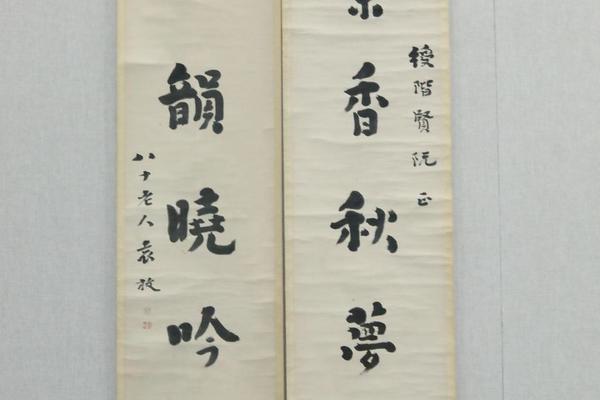 綬階賢阮正
香秋夢
韻曉吟
八十老人袁枚